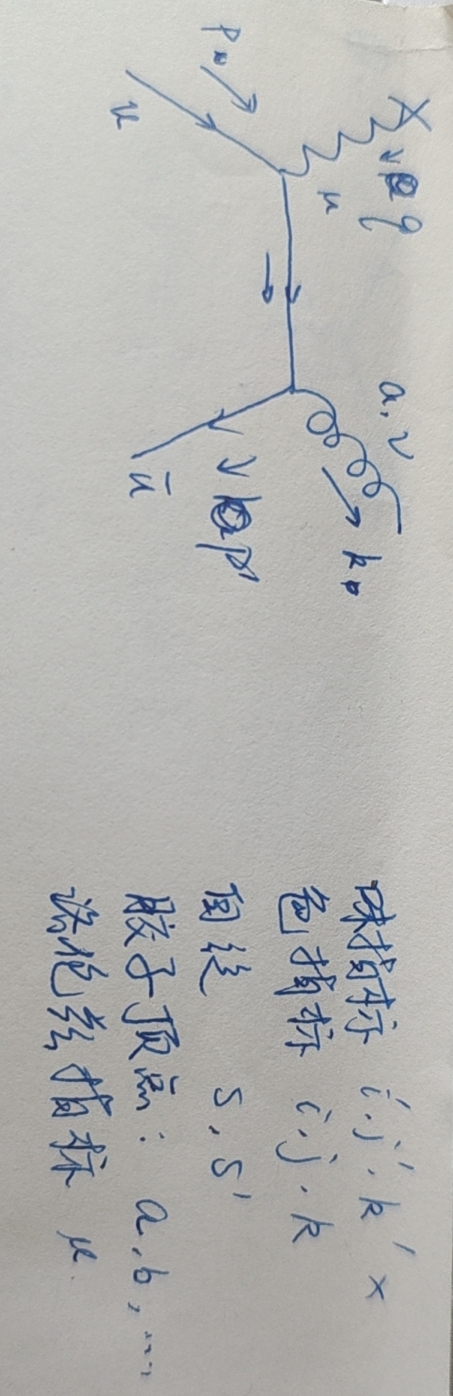 q
a, ν
k
μ
p
p'
u
ū
味指标 i'. j'. k' ×
色指标 i. j. k
自旋 s, s'
胶子顶点: a, b, ....
洛伦兹指标 μ.